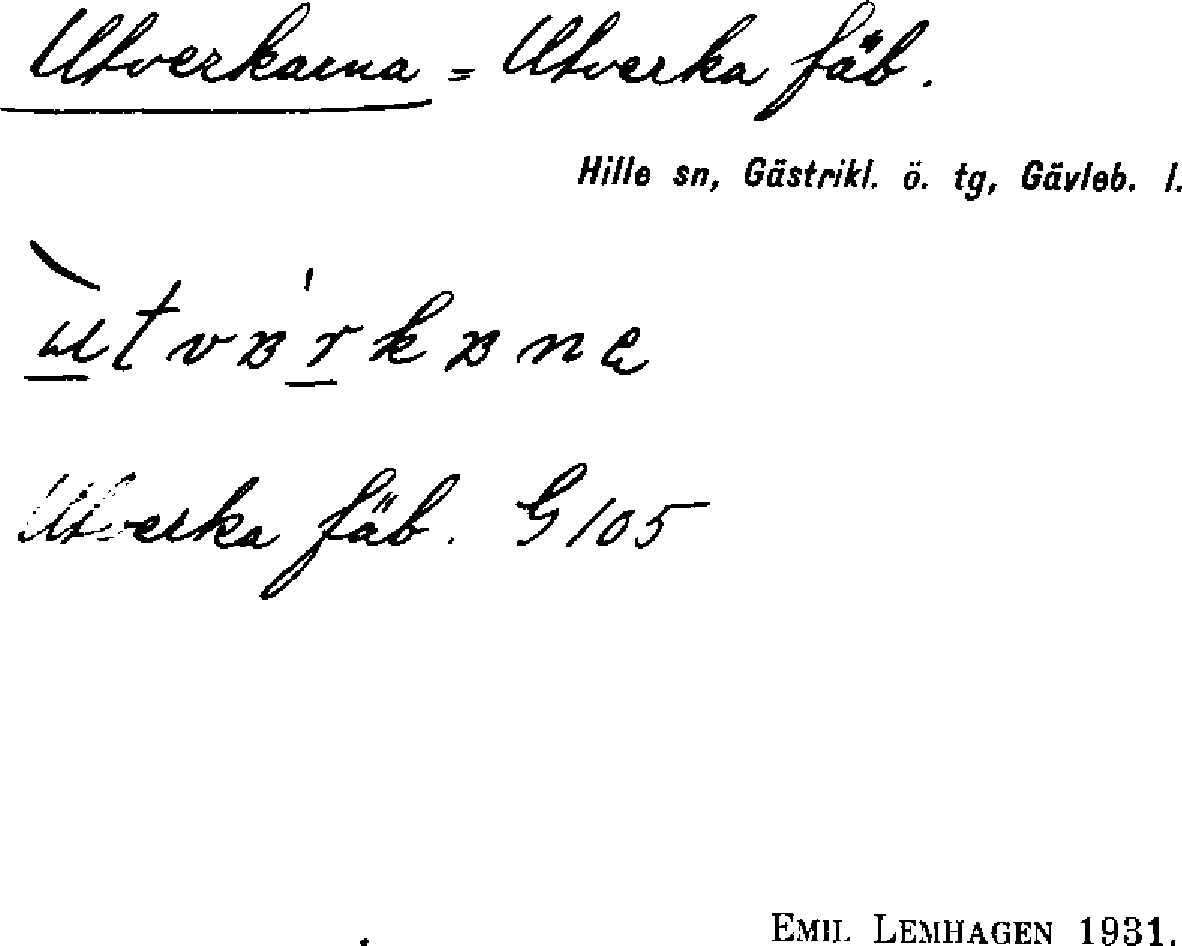 Utverkarna = Utverka fäb.
Hille sn, Gästrikl. ö. tg, Gävleb. l.
Utverka fäb. G 105
EMIL LEMHAGEN 1931.